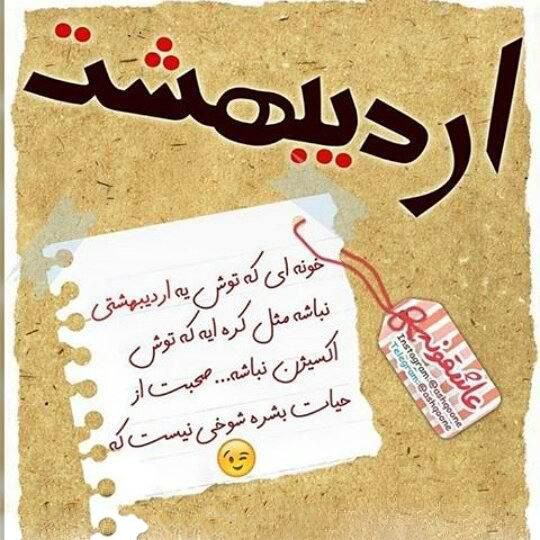 اردیبهشت
خونه ای که توش یه اردیبهشتی
نباشه مثل کره ایه که توش
اکسیژن نباشه... صحبت از
حیات بشره شوخی نیست که
عاشقونه
Instagram: @ashqoone
Telegram: @ashqoone